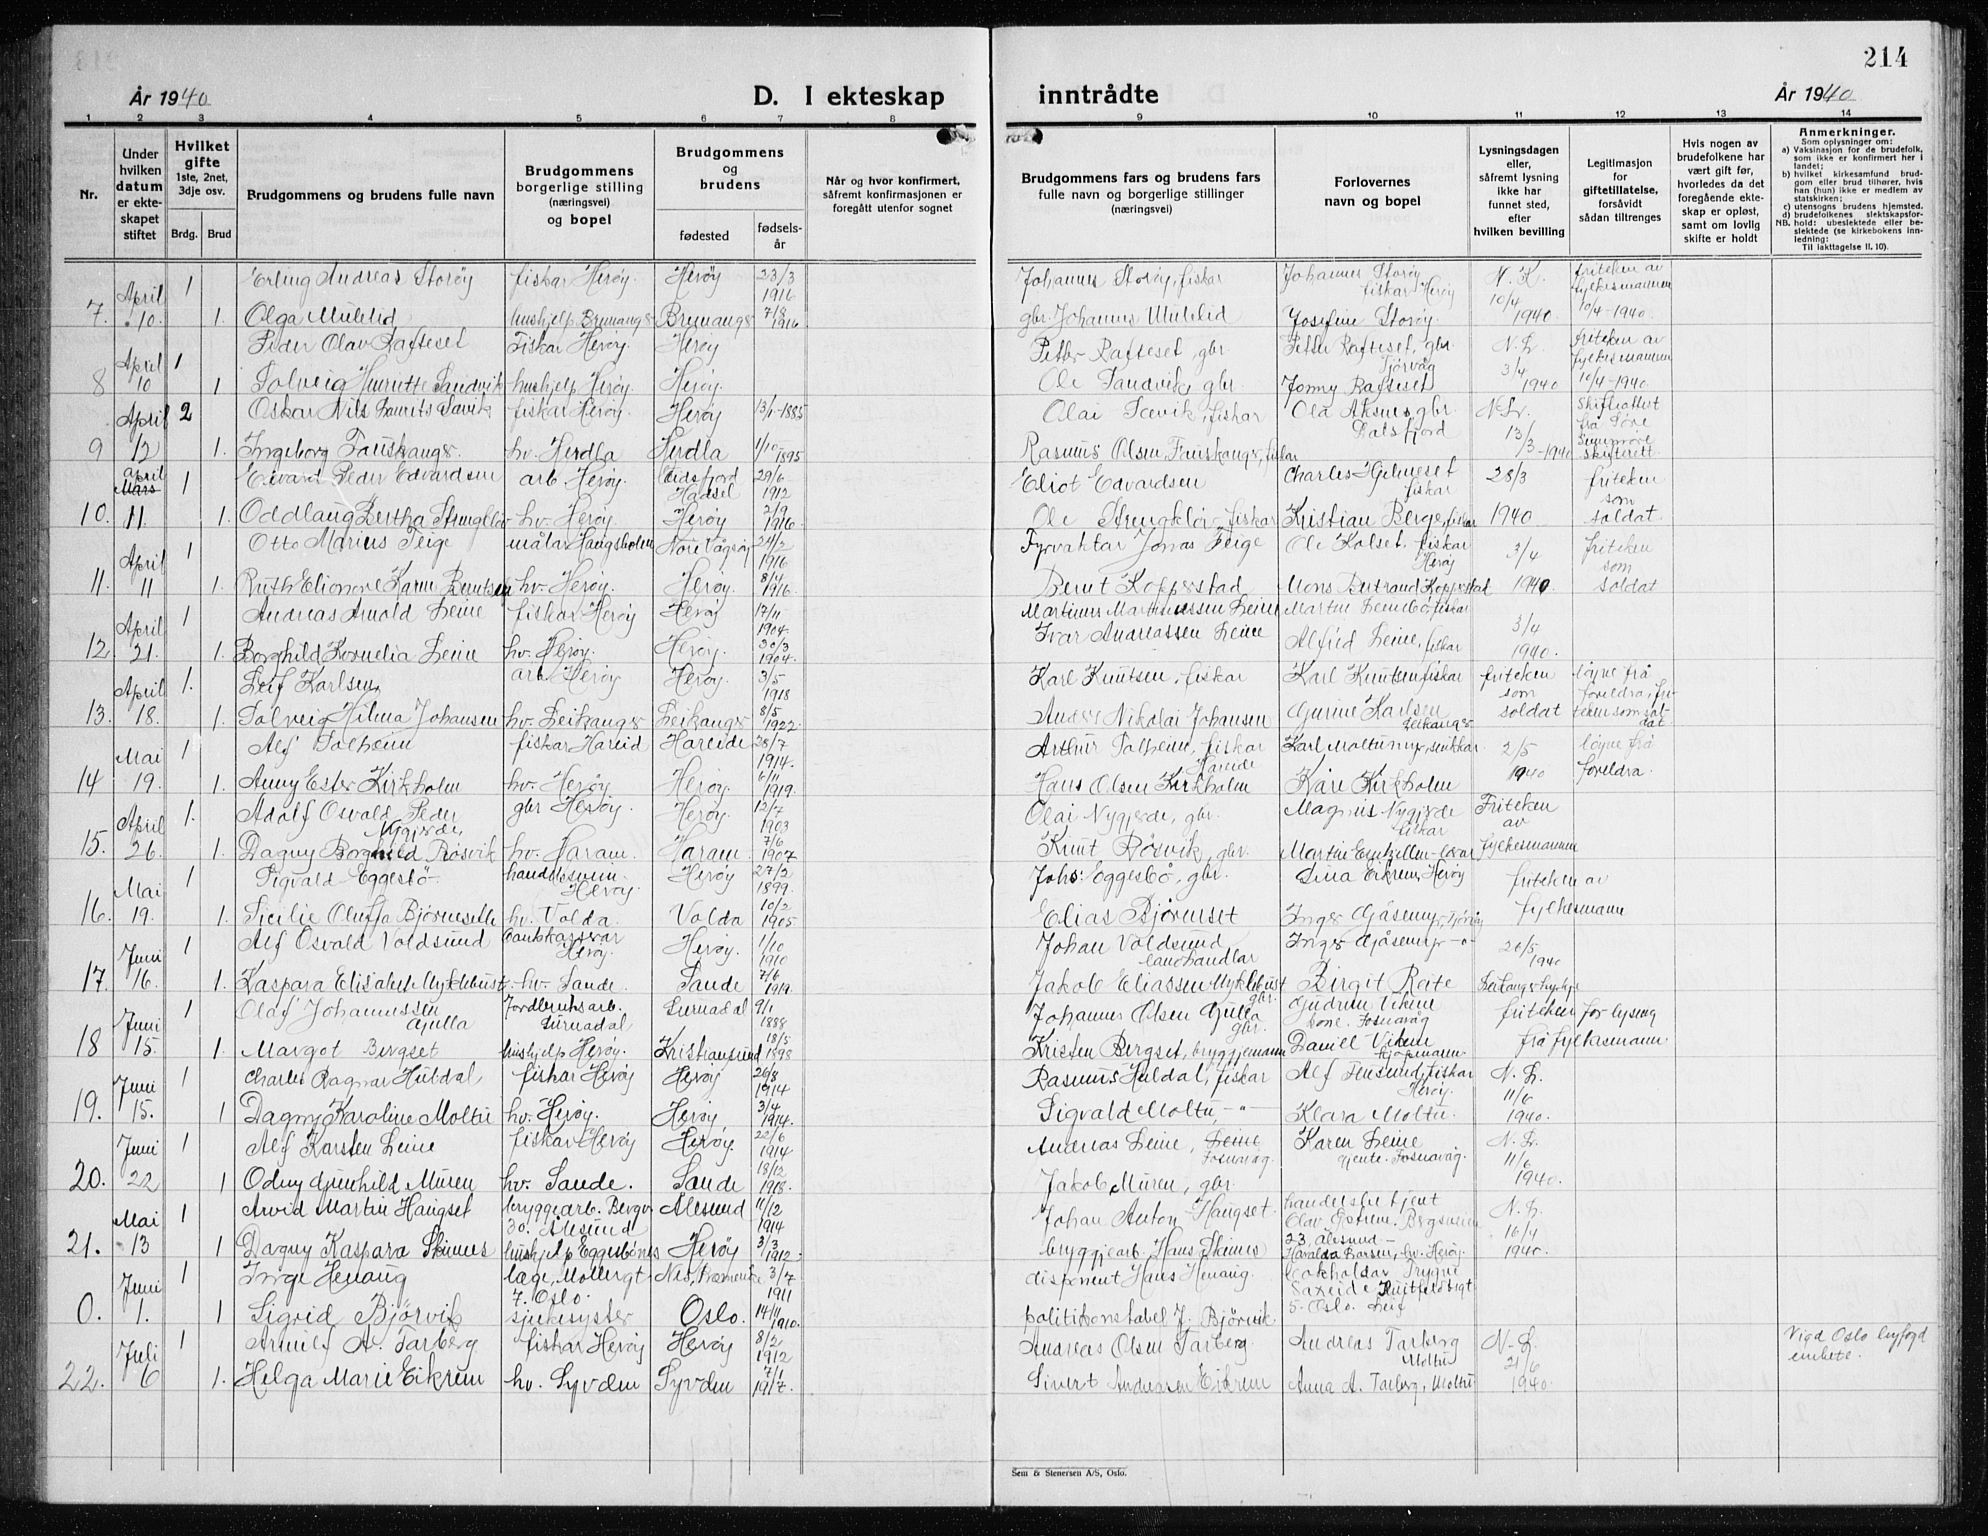 214
År 1940
D. I ekteskap
inntrådte
År 1940
1 2 3 4 5 6 7 8 9 10 11 12 13 14
Nr.
Under hvilken datum er ekteskapet stiftet
Hvilket gifte 1ste, 2net, 3dje osv.
Brdg. Brud
Brudgommens og brudens fulle navn
Brudgommens borgerlige stilling (næringsvei) og bopel
Brudgommens og brudens
fødested
fødselsår
Når og hvor konfirmert, såfremt konfirmasjonen er foregått utenfor sognet
Brudgommens fars og brudens fars fulle navn og borgerlige stillinger (næringsvei)
Forlovernes navn og bopel
Lysningsdagen eller, såfremt lysning ikke har funnet sted, efter hvilken bevilling
Legitimasjon for giftetillatelse, forsåvidt sådan tiltrenges
Hvis nogen av brudefolkene har vært gift før, hvorledes da det foregående ekteskap er opløst, samt om lovlig skifte er holdt
Anmerkninger.
Som oplysninger om:
a) Vaksinasjon for de brudefolk, som ikke er konfirmert her i landet;
b) hvilket kirkesamfund brudgom eller brud tilhører, hvis han (hun) ikke er medlem av statskirken;
c) utensogns brudens hjemsted.
d) brudefolkenes slektskapsforhold: ubeslektede eller beslektede (se kirkebokens innledning:
NB.
Til iakttagelse II. 10).
Erling Andreas Storøy fiskar Herøy. Herøy 23/3 1916 Johannes Storøy, fiskar Johannes Storøy fiskar Herøy N. L. 10/4 1940 friteken av fylkesmannen 10/4-1940.
7. April 10. 1 1. Olga Muleled hushjelp Bremanger Bremanger 7/8 1916 gbr. Johannes Muleled Josefine Storøy.
Peder Olav Rafteset Fiskar Herøy. Herøy Petter Rafteset, gbr. Petter Rafteset, gbr. Tjørvåg N. L. 3/4 1940 friteken av fylkesmannen 10/4-1940.
8 April 10 1 1 Solveig Henriette Sandvik hushjelp Herøy. Herøy. Ole Sandvik, gbr. Jonny Rafteset
Oskar Nils Laurits Sævik fiskar Herøy. Herøy 13/1-1885 Olai Sævik, fiskar Ola Aksnes, gbr. Dalsfjord N. L. 13/3-1940 Skifteattest frå Søre Sunnmøre skifterett
9 April 12 2 1. Ingeborg Fauskanger hv. Herdla Herdla 1/10 1895 Rasmus Olsen Fauskanger, fiskar
Edvard Peder Edvardsen arb. Herøy. Eidsfjord Hadsel 29/6 1912 Eliot Edvardsen Charles Hjelmeset fiskar 28/3 1940 friteken som soldat
10. April Mars 11. 1 1. Oddlaug Bertha hv. Herøy Herøy 2/9 1916. Ole fiskar Kristian Berge, fiskar
Otto Marius Teige målar Haugsholmen Nore Vågsøy 24/2 1916 Fyrvaktar Jonas Teige Ole Kolset, fiskar Herøy 3/4 1940 friteken som soldat
11. April 11 1 1. Ruth Elionore Karin Berntsen hv. Herøy. Herøy. 8/4 1916. Bernt Kopperstad Mons Bertrand Kopperstad
Andreas Arnold Leine fiskar Herøy Herøy 17/11 1904. Martinus Martinussen Leine Martin Leinebø, fiskar 3/4 1940.
12. April 21. 1 1. Borghild Kornelia Leine hv. Herøy. Herøy. 30/3 1904. Ivar Andreassen Leine Alfred Leine, fiskar
Leif Karlsen arb. Herøy Herøy. 3/5 1918 Karl Knutsen, fiskar Karl Knutsen fiskar friteken som soldat løyve frå foreldra, friteken som soldat
13. April 18. 1. 1. Solveig Hilma Johansen hv. Leikanger Leikanger 8/5 1922. Anders Nikolai Johansen Gurine Karlsen Leikanger
Alf Solheim fiskar Hareid Hareide 28/7 1914. Arthur Solheim, fiskar Hareide Karl Moltumyr, snikkar 2/5 1940 løyve frå foreldra.
14 Mai 19. 1 1. Anny Ester Kirkholm hv. Herøy. Herøy. 6/11 1919. Hans Olsen Kirkholm Kåre Kirkholm
Adolf Osvald Peder Nygjerde gbr Herøy. Herøy. 12/7 1903 Olai Nygjerde, gbr. Magnus Nygjerde fiskar Friteken av fylkesmannen
15. April 26. 1. 1. Dagny Borghild Røsvik hv. Haram. Haram. 7/6 1907 Knut Røsvik, gbr.
Sigvald Eggesbø handelsmann. Herøy. Herøy 27/2 1899. Johs: Eggesbø, gbr. Lina Eikrem, Herøy friteken av fylkesmann
16. Mai 19. 1 1. Sicilie Oluffa Bjørneset hv. Volda. Volda 10/2 1905 Elias Bjørneset Inger Gjåsemyr, Tjørvåg
Alf Osvald Voldsund bankkasserar Herøy. Herøy. 1/10 1910 Johan Voldsund landhandlar Inger Gjåsemyr -"- 26/5 1940
17. Juni 16. 1 1. Kaspara Elisabet Myklebust hv. Sande. Sande 7/6 1919. Jakob Eliassen Myklebust gbr. Birgit Reite Leikanger kyrkje
Olaf Johannessen Gulla Jordbruksarb. Surnadal Surnadal 9/1 1888 Johannes Olsen Gulla gbr. Gudrun Vikene kone. Fosnavåg friteken for lysing frå fylkesmann
18 Juni 15. 1 1. Margot Bergset hushjelp Herøy. Kristiansund 18/5 1898 Kristen Bergset, bryggjemann Daniel Vikene
Charles Ragnar Huldal fiskar Herøy Herøy 26/8 1914 Rasmus Huldal, fiskar Alf fiskar Herøy. N. L. 11/6 1940.
19. Juni 15. 1 1 Dagny Karoline Moltu hv. Herøy. Herøy 3/4 1914. Sigvald Moltu, -"- Klara Moltu.
Alf Karsten Leine fiskar Herøy Herøy. 22/6 1914 Andreas Leine, Leine Fosnavåg. Karen Leine gjente. Fosnavåg. N. L. 11/6 1940.
20. Juni 22 1 1 Odny Gunhild Muren hv. Sande. Sande 18/12 1918. Jakob Muren, gbr.
Arvid Martin Haugset bryggearb. Berger 30. Ålesund Ålesund 11/12 1914 Johan Anton Haugset handelsbetjent Olav 23, Ålesund - N. L. 16/4 1940.
21. Mai 13 1 1 Dagny Kaspara Skinnes hushjelp Eggesbønes Herøy 3/3 1912. bryggjearb. Hans Skinnes hv. Herøy.
Inge Henaug læge, Mollergt 7. Oslo. Nes, 3/7 1911 disponent Hans Henaug. bokholdar Trygve Saxeide Huitfeldtsgt 5. Oslo. Leif
0. Juni 1. 1 1 Sigrid Bjørvik sjukesyster Oslo. 14/11 1910. politikonstabel J. Bjørvik
Arnulf A. Tarberg fiskar Herøy Herøy 8/2 1912 Andreas Olsen Tarberg. Andreas Tarberg Moltu N. L. 21/6 1940. Vigd Oslo byfogd embete.
22. Juli 6 1 1. Helga Marie Eikrem hv. Syvden Syvden 7/1 1917. Sivert Andersen Eikrem Anna A. Tarberg, Moltu
Sem & Stenersen A/S, Oslo.